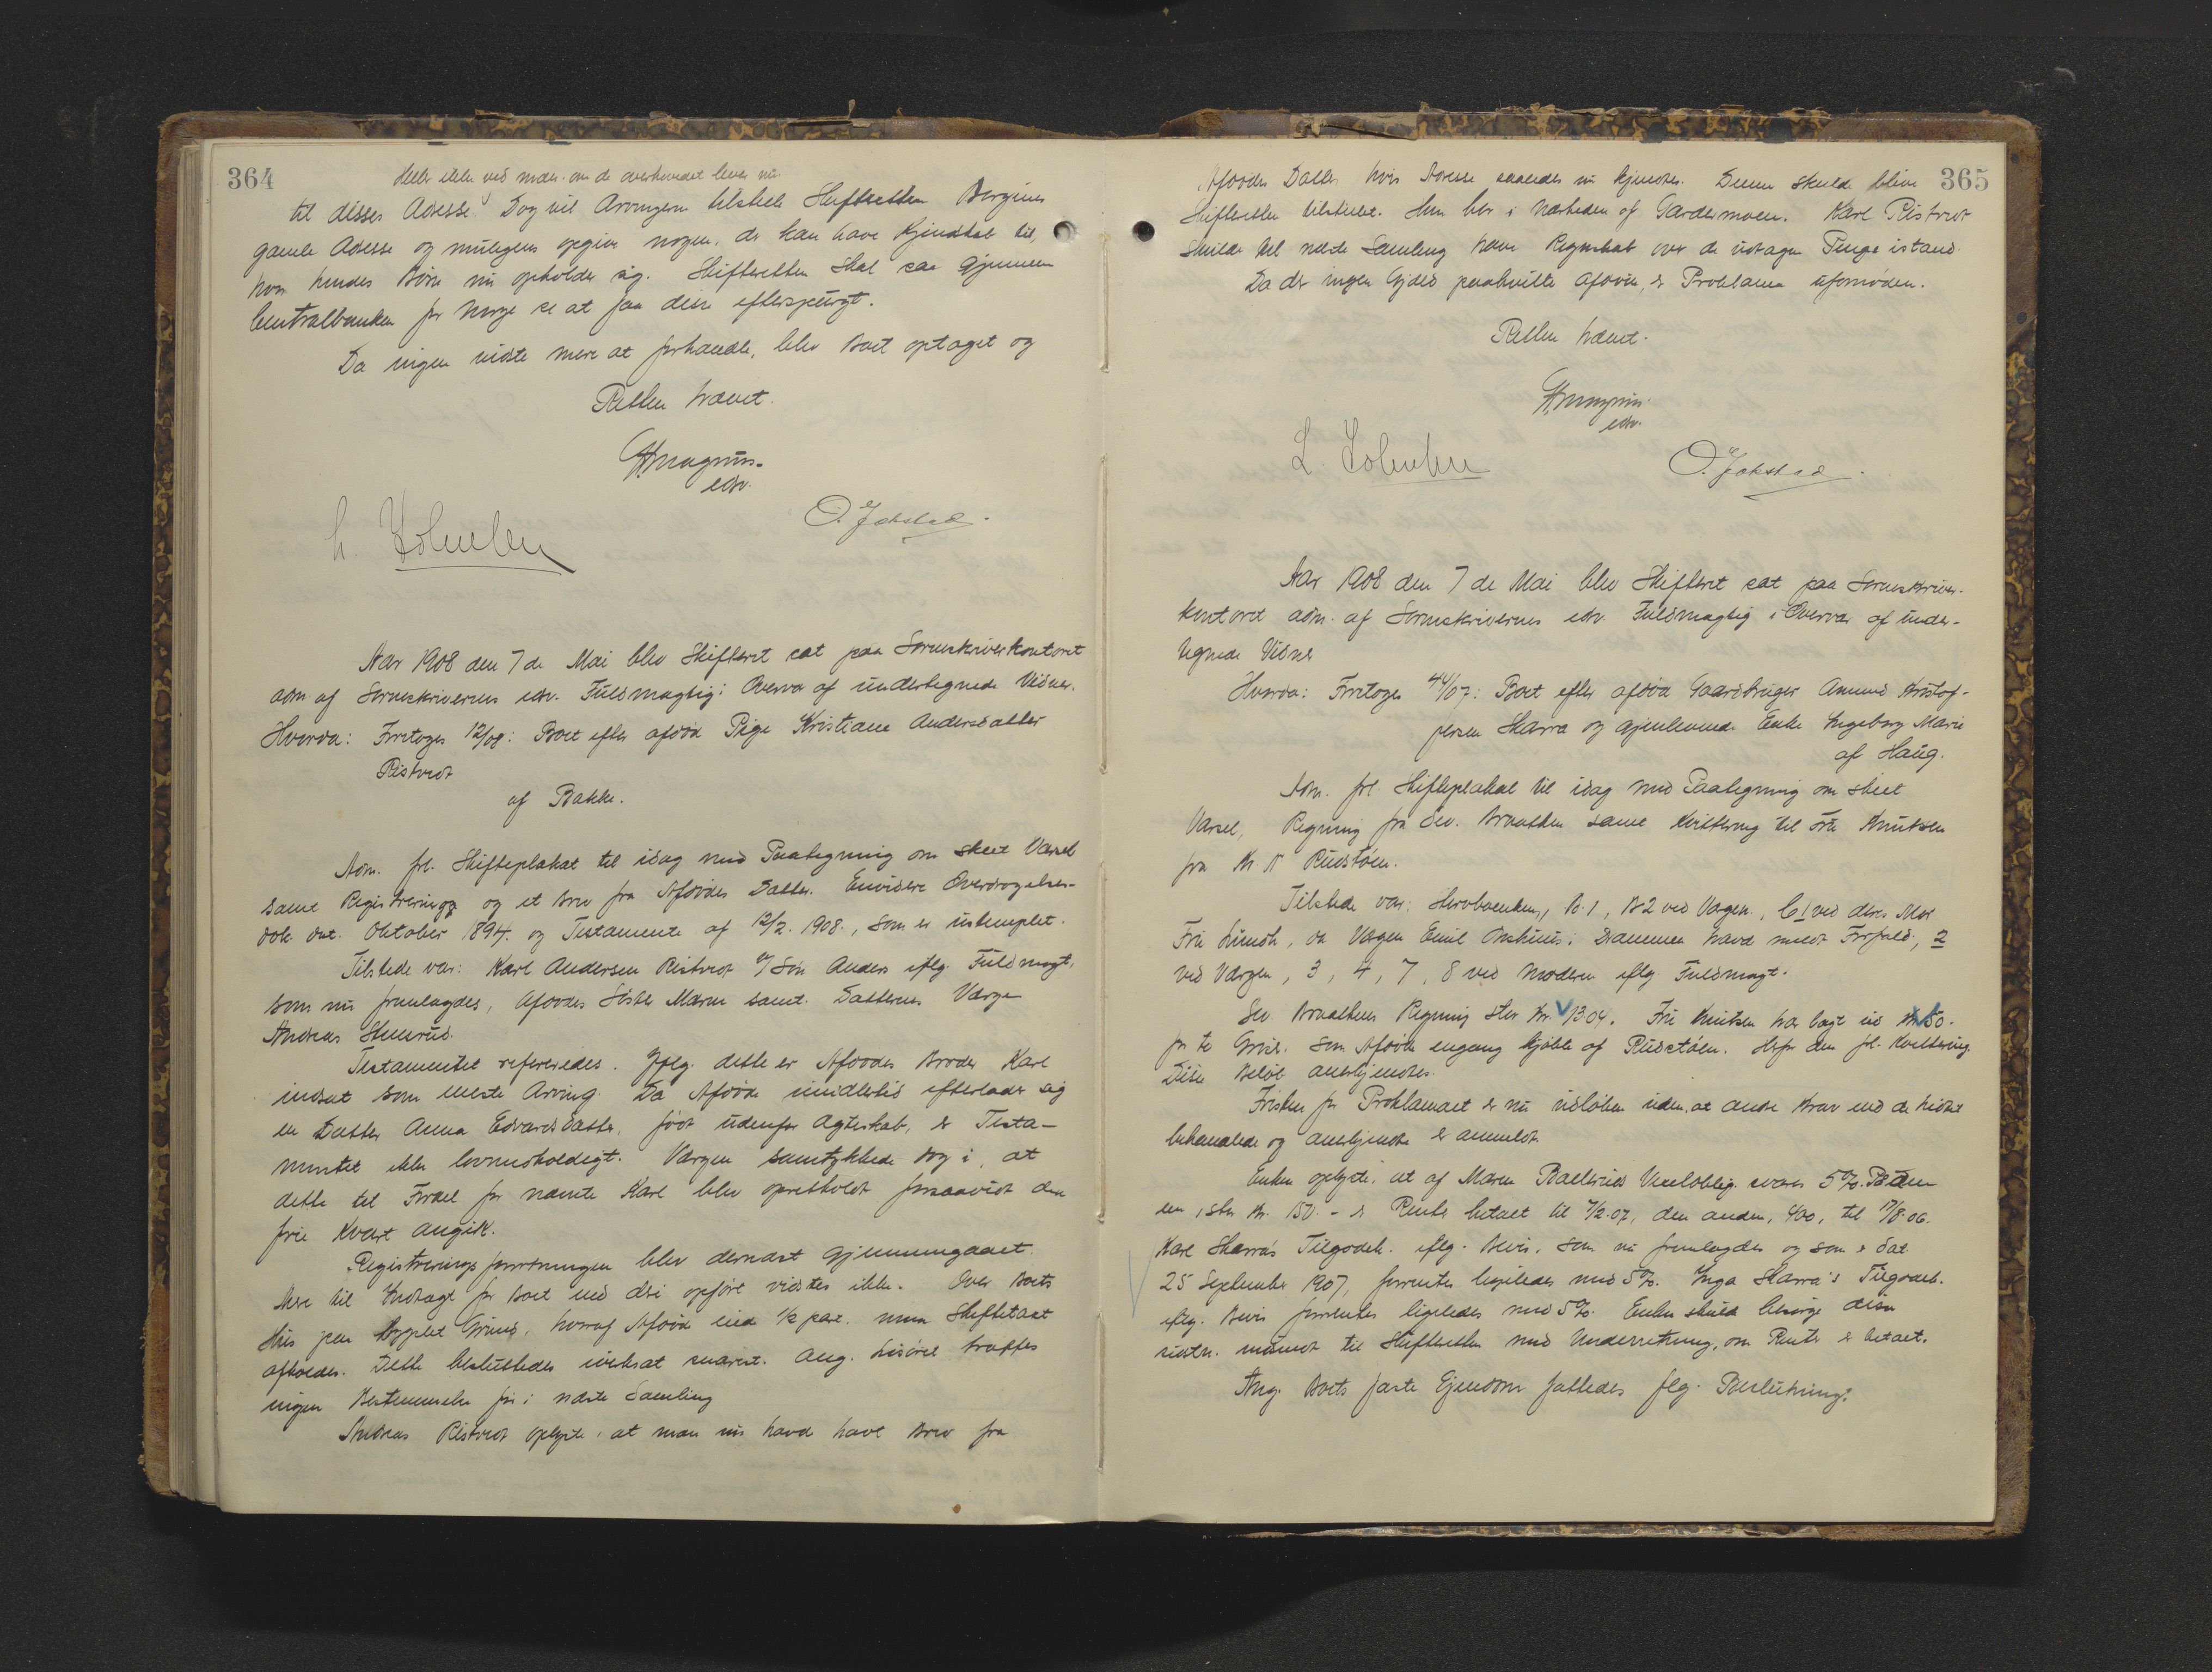 364
Heller ikke ved man om de overhovedet lever nu
til disses Adresse. Dog vil Arvingerne tilstille Skifteretten Bergines
gamle Adresse og muligens opgive nogen, der kan have Kjendskab til,
hvor hendes Børn nu opholder sig. Skifteretten skal saa gjennem
Centralbanken for Norge se at faa disse efterspurgt.
Da ingen vidste mere at forhandle, blev Boet optaget og
Retten hævet.
Magnus.
edsv.
L. Kolmben
O. Jokstad.
Aar 1908 den 7de Mai blev Skifteret sat paa Sorenskriverkontoret
adm af Sorenskriverens edsv. Fuldmægtig i Overvær af undertegnede Vidner.
Hvorda: Foretoges 12/08: Boet efter afdøde Pige Kristiane Andersdatter
Ristvedt
af Bakke.
Adm. frl. Skifteplakat til idag med Paategning om skeet Varsel
samt Registrering og et Brev fra Afdødes Datter. Envidere Overdragelses-
dok. dat. Oktober 1894. og Testamente af 12/2. 1908., som er istemplet.
Tilstede var: Karl Andersen Ristvedt v/ Søn Anders iflg. Fuldmagt,
som nu fremlagdes, Afdødes Søster Maren samt Datterens Værge
Andreas
Testamentet refereredes. Iflg. dette er Afdødes Broder Karl
indsat som eneste Arving. Da Afdøde imidlertid efterlader sig
en Datter Anna Edvardsdatter, født udenfor Ægteskab, er Testa-
mentet ikke lovmedholdigt. Værgen samtykkede dog i, at
dette til Fordel for nævnte Karl blev opretholdt forsaavidt den
frie Kvart angik.
Registreringsforretningen blev dernæst gjennemgaaet.
Mere til Indtægt for Boet end deri opført vidstes ikke. Over Boets
Hus paa bygslet Grund, hvoraf Afdøde eied 1/2 part. maa Skiftetaxt
afholdes. Dette besluttedes iverksat snarest. Ang. Løsøret traffes
ingen Bestemmelse før i næste Samling
Andreas Ristvedt oplyste, at man nu havd havt Brev fra
365
Afdødes Datter, hvis Adresse saaledes nu kjendtes. Denne skulde blive
Skifteretten tilstillet. Hun bor i Nærheden af Gardermoen. Karl Ristvedt
skulde til næste Samling have Regnskab over de udtagne Penge istand.
Da der ingen Gjæld paahvilte Afdøde, er Proklama ufornøden.
Retten hævet.
Magnus.
edsv.
L. Kolmben
O. Jokstad.
Aar 1908 den 7de Mai blev Skifteret sat paa Sorenskriver-
kontoret adm. af Sorenskriverens edsv. Fuldmægtig i Overvær af under-
tegnede Vidner
Hvorda: Foretoges 44/07: Boet efter afdøde Gaardbruger Amund Kristof-
fersen Skarra og gjenlevende Enke Ingeborg Marie
af Haug.
Adm. frl. Skifteplakat til idag med Paategning om skeet
Varsel, Regning fra Sev. Braathen samt Kvittering til Fru Knutsen
fra Kr. N Rudstøen.
Tilstede var: Hervborenken, B. 1, B 2 ved Værgen, C 1 ved deres Mor
Fru Lundh, da Værgen Emil i Drammen havd meldt Forfald, 2
ved Værgen, 3, 4, 7, 8 ved Moderen iflg. Fuldmagt.
Sev. Braathens Regning stor Kr. 13.04. Fru Knutsen har lagt ud Kr 50.-
for to Grise som Afdøde engang kjøbte af Rudstøen. Herfor den frl. Kvittering.
Disse Beløb anerkjendtes.
Fristen for Proklamaet er nu udløben uden, at andre Krav end de hidtil
behandlede og anerkjendte er anmeldt.
Enken oplyste, at af Maren Baellerud Vexelobl. svares 5 %. Paa den
en, stor Kr. 150.- er Rente betalt til 7/2.07, den anden, 400, til 17/8.06.
Karl Skarra's Tilgodeh. iflg. Bevis, som nu fremlagdes og som er dat
25 September 1907, forrentes ligeledes med 5%. Inga Skarra's Tilgodeh.
iflg. Bevis forrentes ligeledes med 5%. Enken skuld besørge disse
sidstn. indsendt til Skifteretten med Underretning, om Rente er betalt.
Ang. Boets faste Ejendom fattedes flg. Beslutning: